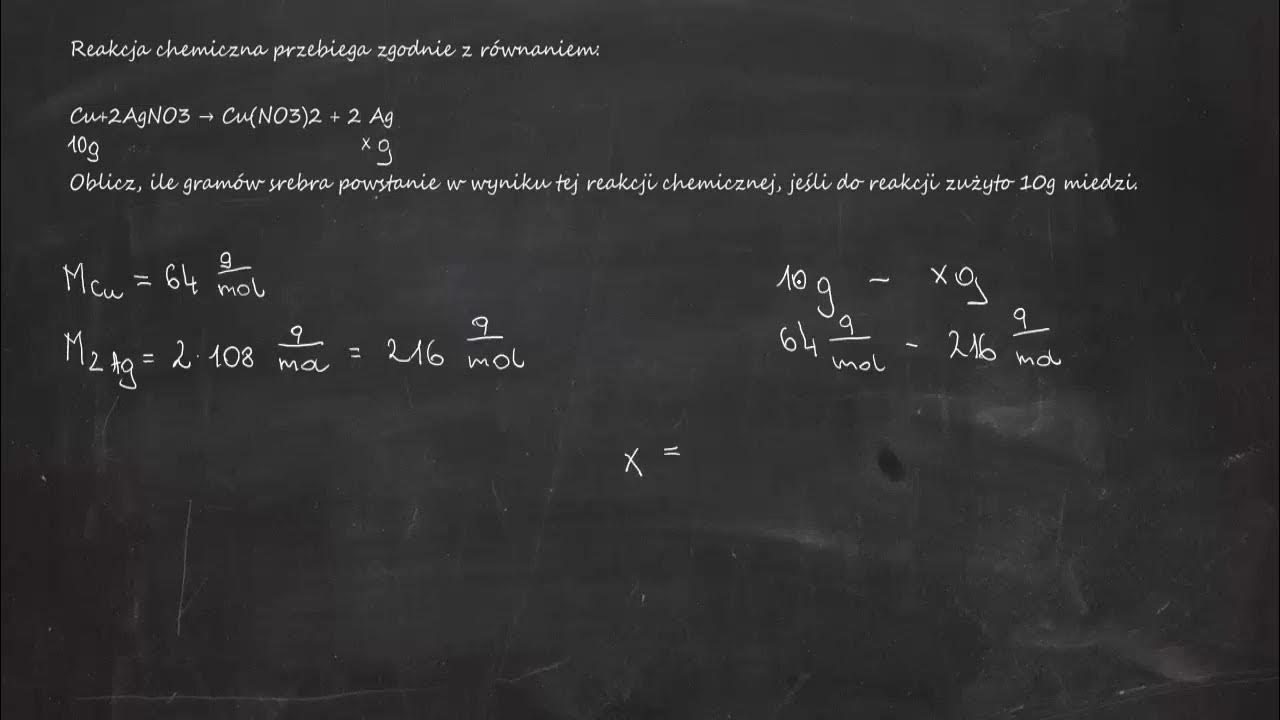 Reakcja chemiczna przebiega zgodnie z równaniem:
Cu+2AgNO3 → Cu(NO3)2 + 2 Ag
10g x g
Oblicz, ile gramów srebra powstanie w wyniku tej reakcji chemicznej, jeśli do reakcji zużyto 10g miedzi.
M Cu = 64 g/mol
10g - x g
M 2 Ag = 2 · 108 g/mol = 216 g/mol
64 g/mol - 216 g/mol
x =